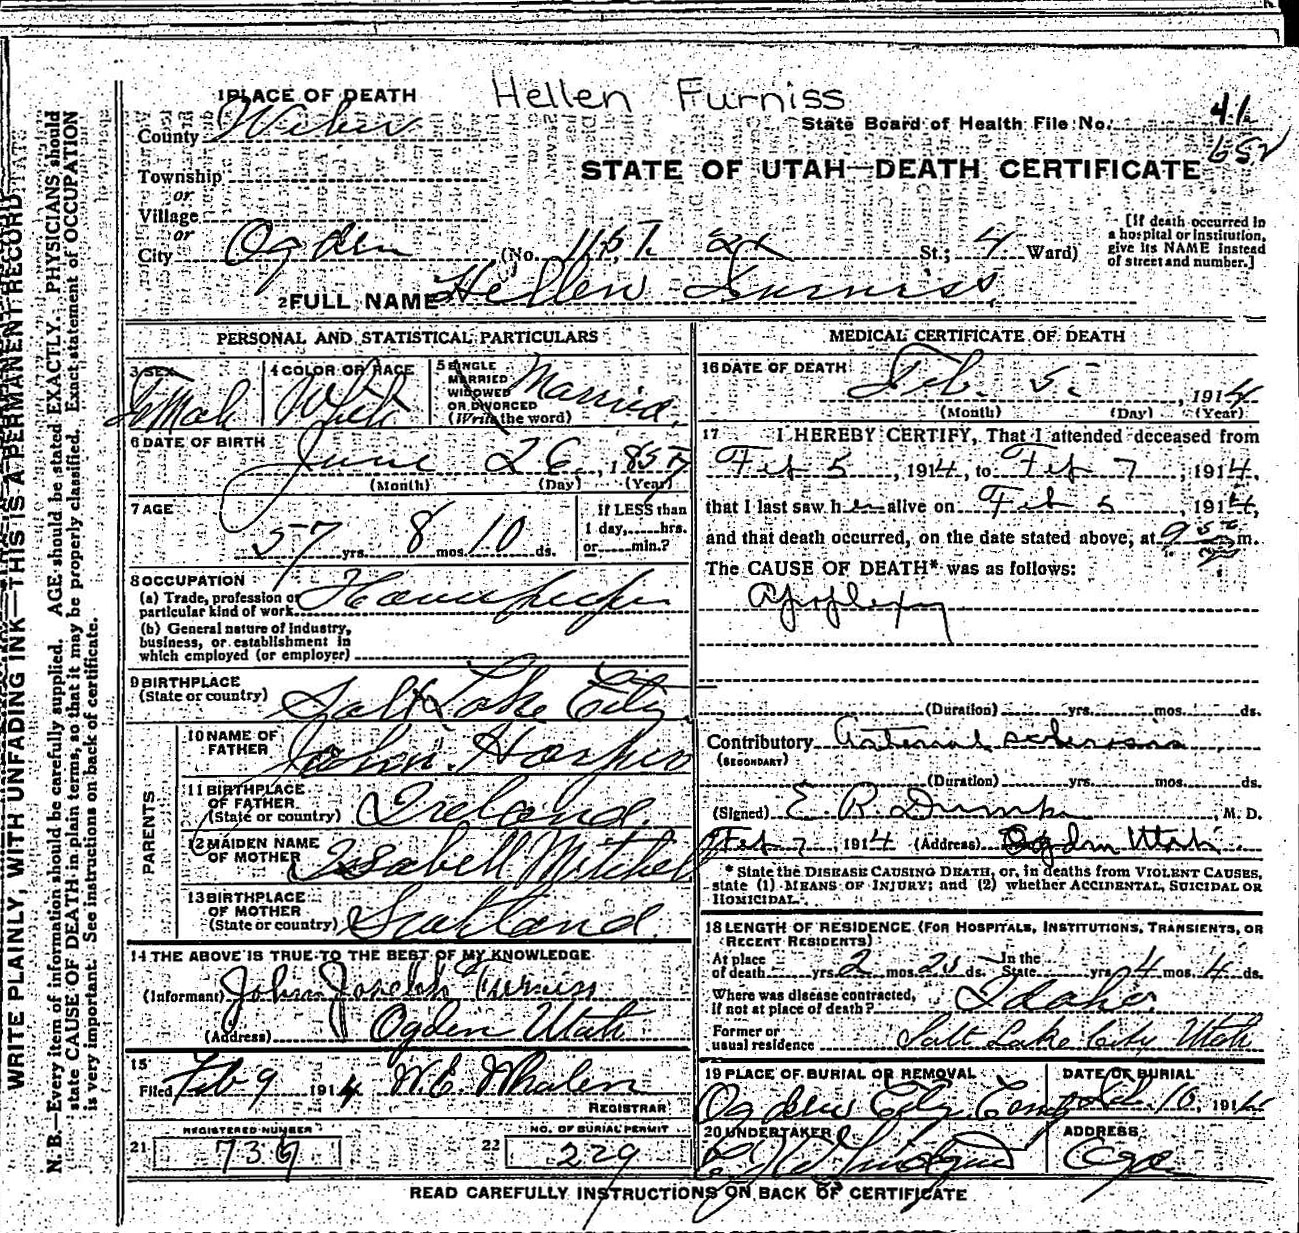 Hellen Furniss
1 PLACE OF DEATH
County Weber
State Board of Health File No. 41
652
Township
or
STATE OF UTAH—DEATH CERTIFICATE
Village
or
City Ogden (No. St.; 4 Ward)
[If death occurred in
a hospital or institution,
give its NAME instead
of street and number.]
2 FULL NAME Hellen Furniss
PERSONAL AND STATISTICAL PARTICULARS
3 SEX Female
4 COLOR OR RACE White
5 SINGLE
MARRIED
WIDOWED
OR DIVORCED
(Write the word) Married
6 DATE OF BIRTH
June 26, 1857
(Month) (Day) (Year)
7 AGE
57 yrs. 8 mos. 10 ds.
If LESS than
1 day, hrs.
or min.?
8 OCCUPATION
(a) Trade, profession or
particular kind of work Housekeeper
(b) General nature of industry,
business, or establishment in
which employed (or employer)
9 BIRTHPLACE
(State or country) Salt Lake City
PARENTS
10 NAME OF
FATHER John Harper
11 BIRTHPLACE
OF FATHER
(State or country) Ireland.
12 MAIDEN NAME
OF MOTHER Isabell Mitchell
13 BIRTHPLACE
OF MOTHER
(State or country) Scotland.
14 THE ABOVE IS TRUE TO THE BEST OF MY KNOWLEDGE
(Informant) John Joseph Furniss
(Address) Ogden Utah
15
Filed Feb 9 1914 W.E. Whalen
REGISTRAR
21 REGISTERED NUMBER
22 NO. OF BURIAL PERMIT
229
MEDICAL CERTIFICATE OF DEATH
16 DATE OF DEATH
Feb 5. , 1914
(Month) (Day) (Year)
17 I HEREBY CERTIFY, That I attended deceased from
Feb 5 , 1914, to Feb 7 , 1914,
that I last saw her alive on Feb 5 , 1914,
and that death occurred, on the date stated above, at 9 m.
The CAUSE OF DEATH* was as follows:
Apoplexy
(Duration) yrs. mos. ds.
Contributory Arterial sclerosis
(SECONDARY)
(Duration) yrs. mos. ds.
(Signed) E. R. Dumke, M. D.
Feb 7, 1914 (Address) Ogden Utah.
* State the DISEASE CAUSING DEATH, or, in deaths from VIOLENT CAUSES,
state (1) MEANS OF INJURY; and (2) whether ACCIDENTAL, SUICIDAL OR
HOMICIDAL.
18 LENGTH OF RESIDENCE (FOR HOSPITALS, INSTITUTIONS, TRANSIENTS, OR
RECENT RESIDENTS)
At place
of death yrs. 2 mos. 25 ds. In the
State yrs. 4 mos. 4 ds.
Where was disease contracted,
if not at place of death? Idaho.
Former or
usual residence Salt Lake City Utah
19 PLACE OF BURIAL OR REMOVAL
Ogden City Cem
DATE OF BURIAL
Feb. 10, 1914
20 UNDERTAKER
ADDRESS
READ CAREFULLY INSTRUCTIONS ON BACK OF CERTIFICATE
WRITE PLAINLY, WITH UNFADING INK—THIS IS A PERMANENT RECORD
N. B.—Every item of information should be carefully supplied. AGE should be stated EXACTLY. PHYSICIANS should
state CAUSE OF DEATH in plain terms, so that it may be properly classified. Exact statement of OCCUPATION
is very important. See instructions on back of certificate.